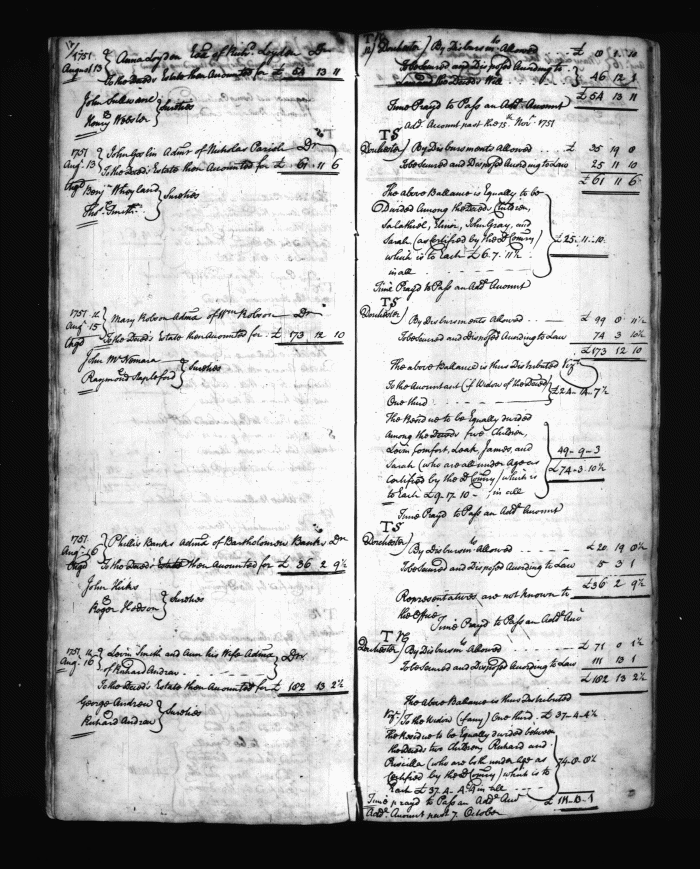 1751 August 13 Anna Loyden Exx of Richd Loyden Dr
To the Deceds Estate then Amounted for £ 54 13 11
John Sullivane
& Henry Webster
Sureties
1751 Augt 13 John Goslin Admr of Nicholas Parish Dr
To the Deceds Estate then Amounted for £ 61 11 6
Benjn Wheyland
Thos Smith
Sureties
1751 Augt 15 Mary Robson Admx of Wm Robson Dr
To the Deceds Estate then Amounted for £ 173 12 10
John McNemara
& Raymond Stapleford
Sureties
1751 Augt 16 Phillis Banks Admx of Bartholomew Banks Dr
To the Deceds Estate then Amounted for £ 36 2 9½
John Hicks
& Roger Hodson
Sureties
1751 Augt 16 Levin Smith and Ann his Wife Admx
of Richard Andrew
Drs
To the Deceds Estate then Amounted for £ 182 13 2½
George Andrew
& Richard Andrew
Sureties
Dorchester By Disbursmts Allowed £ 8 1 10
To be Secured and Disposed According to
the Deceds Will 46 12 1
£ 54 13 11
Time Prayd to Pass an Addl Amount
Addl Account past the 15th Novr 1751
TS
Dorchester By Disbursments Allowed £ 35 19 8
To be Secured and Disposed According to Law 25 11 10
£ 61 11 6
The above Ballance is Equally to be
Divided Among the Deceds Children,
John Gray, and
Sarah (as Certified by the Dy Comry)
which is to Each £ 6.7.11½
in all
£ 25.11.10
Time Prayd to Pass an Addl Amount
TS
Dorchester By Disbursments Allowed £ 99 8 11½
To be Secured and Disposed According to Law 74 3 10½
£ 173 12 10
The above Ballance is thus Distributed Vizt
To the Accountant (if Widow of the Deced)
One third
£ 24-14-7½
The Residue to be Equally divided
Among the Deceds five Children,
Levin, Comfort, Leah, James, and
Sarah (who are all under Age as
Certified by the Dy Comry) which is
to Each £ 9.17.10 in all
49-9-3
£ 74-3-10½
Time Prayd to Pass an Addl Amount
TS
Dorchester By Disbursmts Allowed £ 20 19 8½
To be Secured and Disposed According to Law 15 3 1
£ 36 2 9½
Representatives are not known to
the Office
Time Prayd to Pass an Addl Acct
Dorchester By Disbursmts Allowed £ 71 0 1½
To be Secured and Disposed According to Law 111 13 1
£ 182 13 2½
The Above Ballance is thus Distributed
Vizt To the Widow (if any) One third £ 37-4-4½
The Residue to be Equally divided between
the Deceds two Children, Richard and
Priscilla (who are both under Age as
Certified by the Dy Comry) which is to
Each £ 37.4.4¼ in all
74-8-8½
£ 111-13-1
Time prayd to Pass an Addl Acct
Addl Amount past 7 October